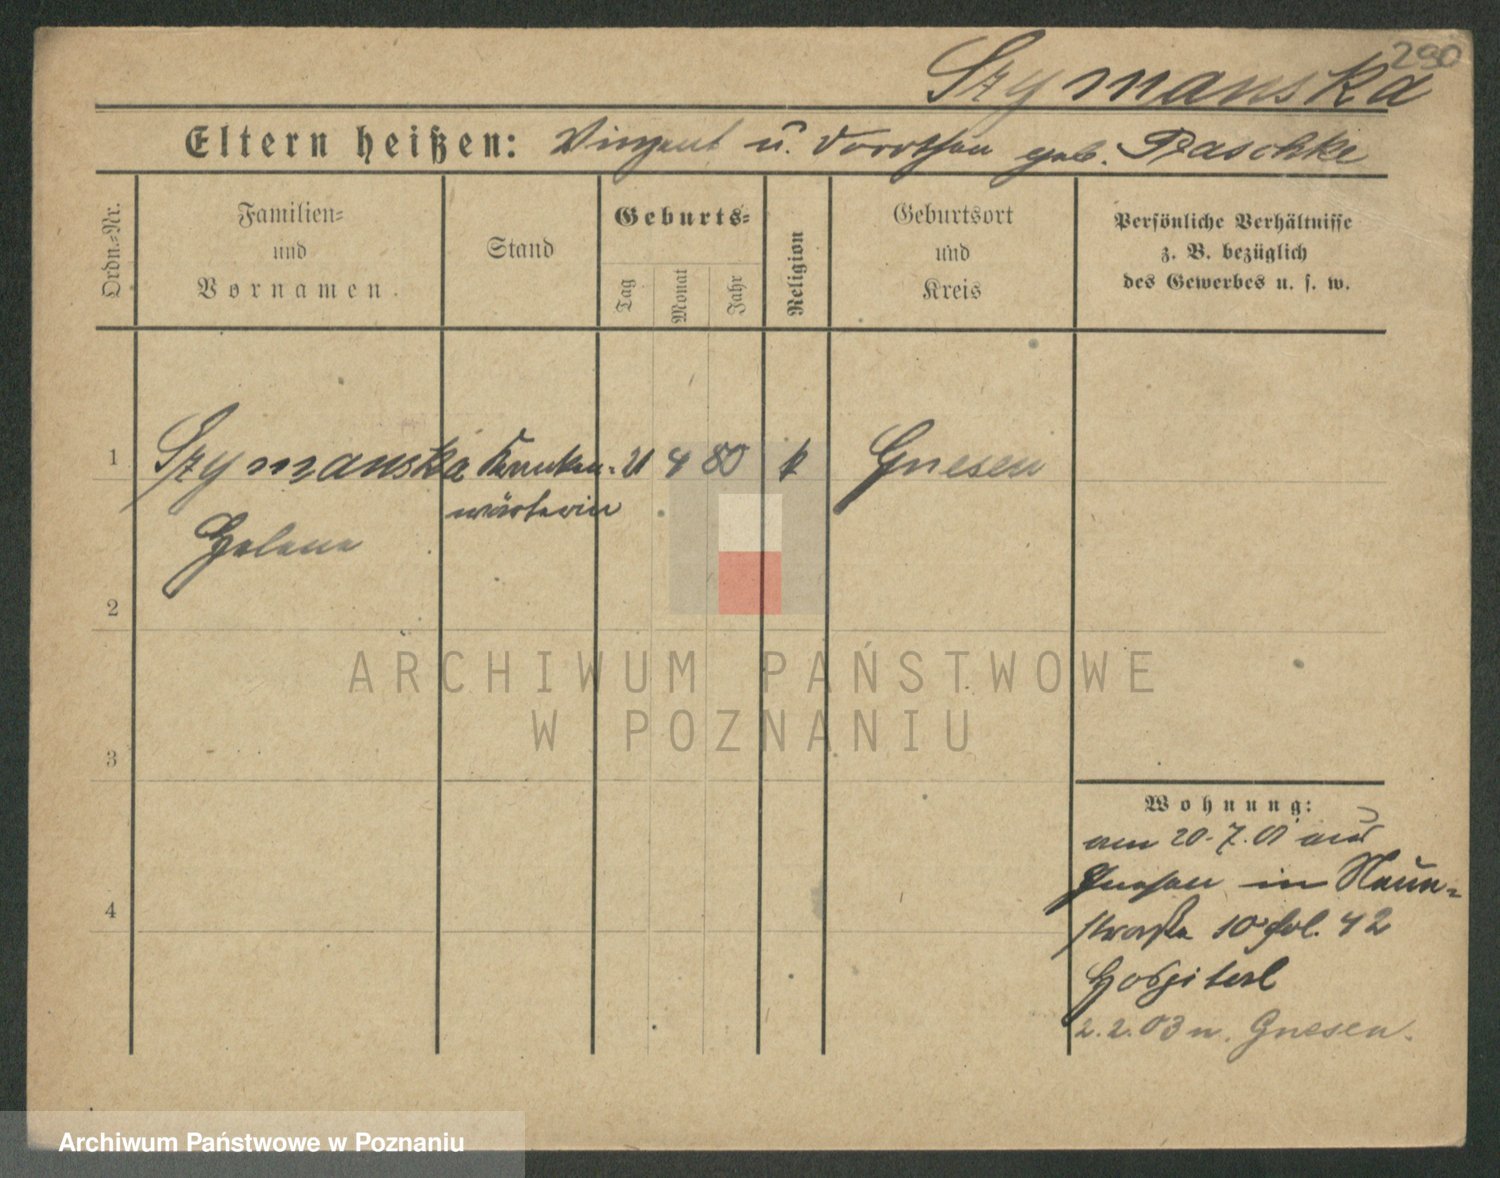 290
Szymanska
Eltern heißen: Vinzent u. Dorothea geb. Praschke
Ordn.=Nr.
Familien=
und
Vornamen.
Stand
Geburts=
Tag
Monat
Jahr
Religion
Geburtsort
und
Kreis
Persönliche Verhältnisse
z. B. bezüglich
des Gewerbes u. s. w.
1 Szymanska Kranken= 4 80 k Gnesen
wärterin
Helene
2
3
4
ARCHIWUM PAŃSTWOWE
W POZNANIU
Wohnung:
am 20.7.01 aus
Gnesen in Neue=
straße 10 fol. 42
Hospital
2.2.03 n. Gnesen.
Archiwum Państwowe w Poznaniu